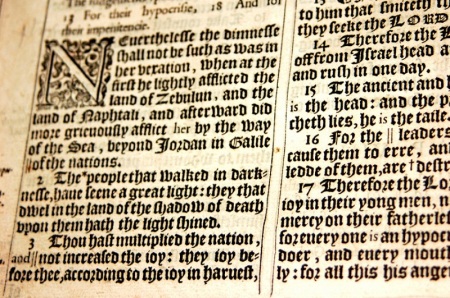 13 For their hypocrisie, 18 And for
their impenitencie.
NEuerthelesse the dimnesse
shall not be such as was in
her vexation, when at the
first he lightly afflicted the
land of Zebulun, and the
land of Naphtali, and afterward did
more grieuously afflict her by the way
of the Sea, beyond Jordan in Galile
|| of the nations.
2 The people that walked in dark-
nesse, haue seene a great light: they that
dwel in the land of the shadow of death
vpon them hath the light shined.
3 Thou hast multiplied the nation,
and || not increased the ioy: they ioy be-
fore thee, according to the ioy in haruest,
to him that smiteth th
they seeke the LORD
14 Therefore the L
off from Israel head a
and rush in one day.
15 The ancient and h
is the head: and the p
cheth lies, he is the taile.
16 For the || leaders
cause them to erre, and
ledde of them, are † destr
17 Therefore the Lo
ioy in their yong men, n
mercy on their fatherles
for euery one is an hypoc
doer, and euery mouth
ly: for all this his anger